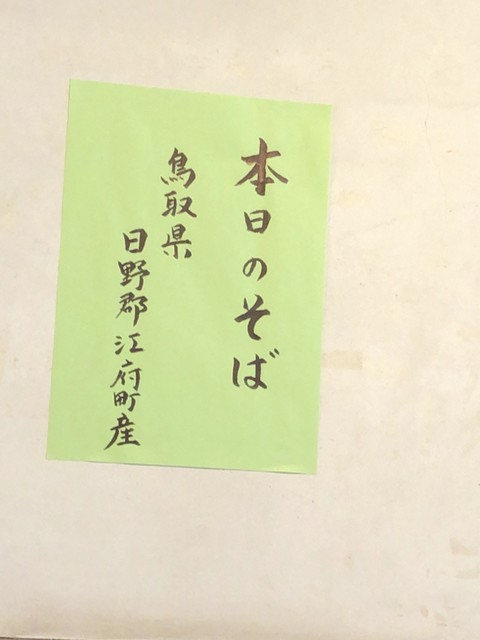 本日のそば
鳥取県
日野郡江府町産